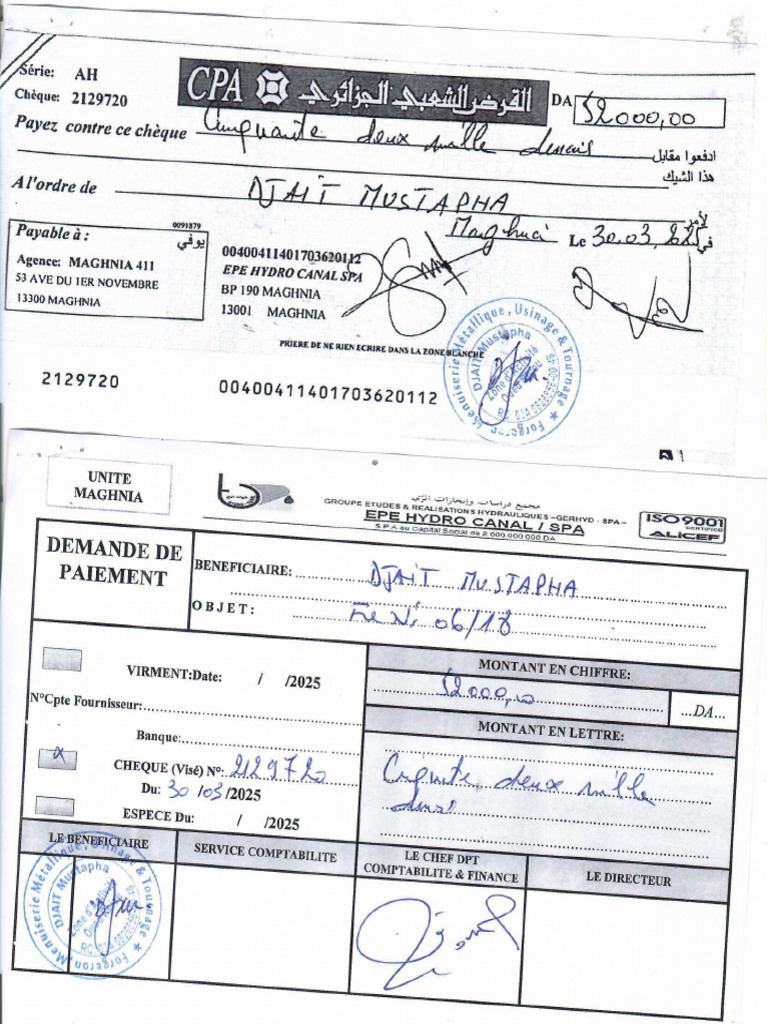 Série: AH
Chèque: 2129720
CPA القرض الشعبي الجزائري
DA 52000,00
Payez contre ce chèque Cinquante deux mille dinars
ادفعوا مقابل هذا الشيك
A l'ordre de DJAIT MUSTAPHA
لأمر
Maghnia Le 30.03.2025 في
0091879
Payable à : يوفي
Agence: MAGHNIA 411
53 AVE DU 1ER NOVEMBRE
13300 MAGHNIA
00400411401703620112
EPE HYDRO CANAL SPA
BP 190 MAGHNIA
13001 MAGHNIA
PRIERE DE NE RIEN ECRIRE DANS LA ZONE BLANCHE
Forgeron, Menuiserie Métallique, Usinage & Tournage
DJAIT Mustapha
Zone d'Activité
2129720 00400411401703620112
UNITE
MAGHNIA
مجمع دراسات وإنجازات الري
GROUPE ETUDES & REALISATIONS HYDRAULIQUES -GERHYD - SPA-
EPE HYDRO CANAL / SPA
S.P.A au Capital Social de 2 000.000.000 DA
ISO 9001
CERTIFIED
ALICEF
DEMANDE DE
PAIEMENT
BENEFICIAIRE: DJAIT MUSTAPHA
OBJET: Fe N: 06/18
VIRMENT:Date: / /2025
N°Cpte Fournisseur:
Banque:
x CHEQUE (Visé) N°: 2129720
Du: 30/03/2025
ESPECE Du: / /2025
MONTANT EN CHIFFRE:
52000,00 ...DA...
MONTANT EN LETTRE:
Cinquante deux mille
dinars
LE BENEFICIAIRE
SERVICE COMPTABILITE
LE CHEF DPT
COMPTABILITE & FINANCE
LE DIRECTEUR
Forgeron, Menuiserie Métallique, Usinage & Tournage
DJAIT Mustapha
Zone d'Activité